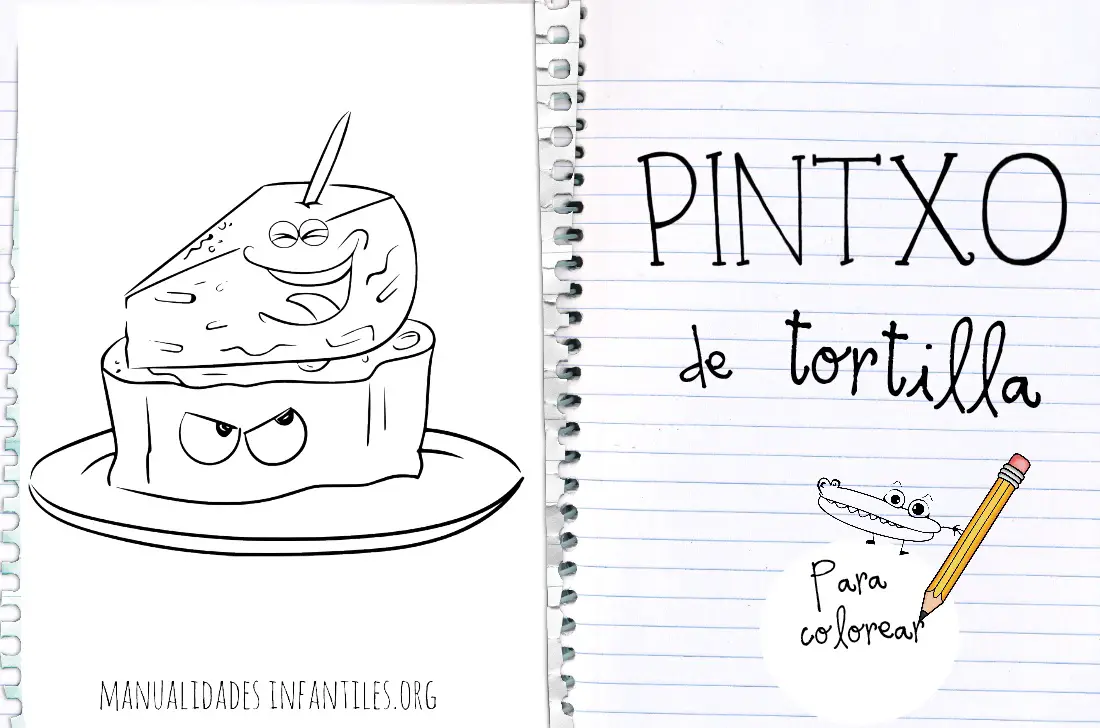 MANUALIDADES INFANTILES.ORG
PINTXO
de tortilla
Para
colorear